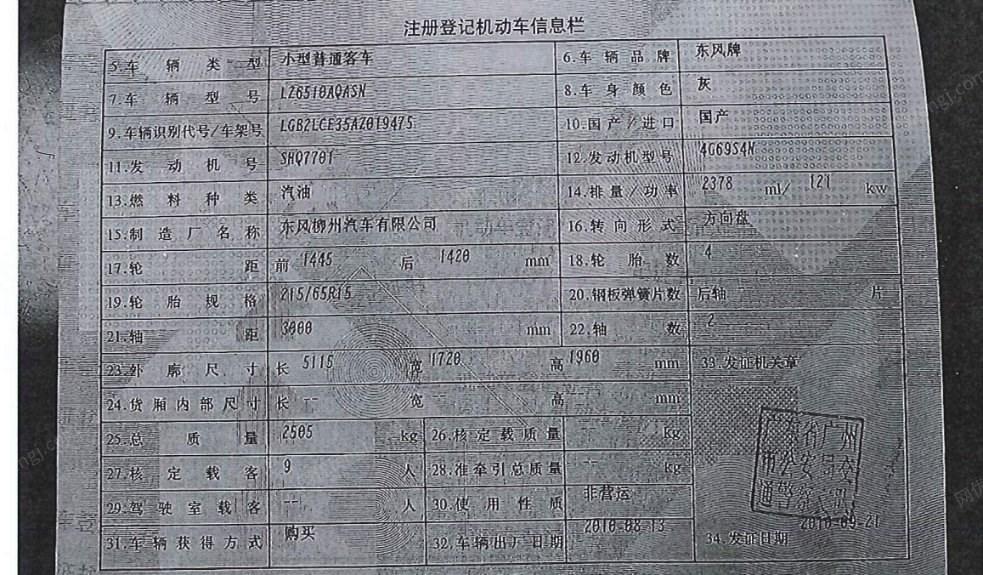 注册登记机动车信息栏
5.车辆类型 小型普通客车 6.车辆品牌 东风牌
7.车辆型号 LZ6510AQASN 8.车身颜色 灰
9.车辆识别代号/车架号 LGB2LCE35AZ019475 10.国产/进口 国产
11.发动机号 SHQ7701 12.发动机型号 4G69S4N
13.燃料种类 汽油 14.排量/功率 2378 ml/ 121 kw
15.制造厂名称 东风柳州汽车有限公司 16.转向形式 方向盘
17.轮距 前 1445 后 1420 mm 18.轮胎数 4
19.轮胎规格 215/65R15 20.钢板弹簧片数 后轴 片
21.轴距 3000 mm 22.轴数 2
23.外廓尺寸 长 5115 宽 1720 高 1960 mm 33.发证机关章
24.货厢内部尺寸 长 -- 宽 -- 高 -- mm
25.总质量 2505 kg 26.核定载质量 -- kg
27.核定载客 9 人 28.准牵引总质量 -- kg
29.驾驶室载客 -- 人 30.使用性质 非营运
31.车辆获得方式 购买 32.车辆出厂日期 2010-08-13 34.发证日期 2010-09-21
广东省广州
市公安局交
通警察支队